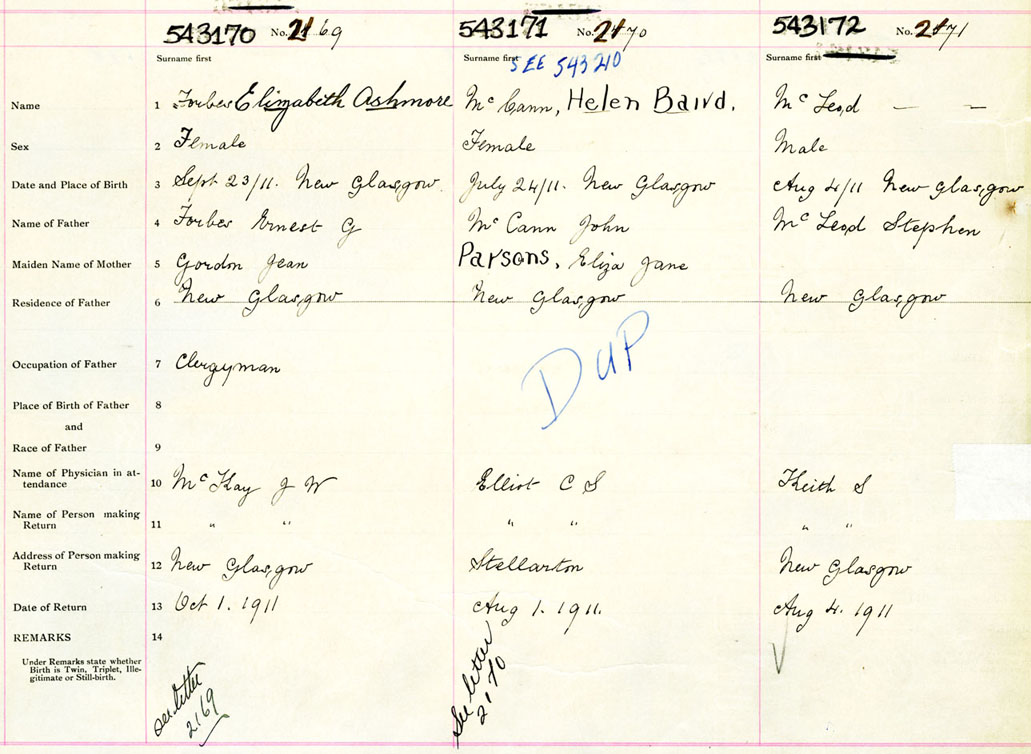 543170 No. 2169 543171 No. 2170 543172 No. 2171
Surname first Surname first SEE 543210 Surname first
Name 1 Forbes Elizabeth Ashmore Mc Cann, Helen Baird. Mc Leod — —
Sex 2 Female Female Male
Date and Place of Birth 3 Sept 23/11. New Glasgow. July 24/11. New Glasgow Aug 4/11 New Glasgow
Name of Father 4 Forbes Ernest G Mc Cann John Mc Leod Stephen
Maiden Name of Mother 5 Gordon Jean Parsons, Eliza Jane
Residence of Father 6 New Glasgow New Glasgow New Glasgow
DUP
Occupation of Father 7 Clergyman
Place of Birth of Father 8
and
Race of Father 9
Name of Physician in at-
tendance 10 Mc Kay J W Elliot C S Keith S
Name of Person making
Return 11 " " " " " "
Address of Person making
Return 12 New Glasgow Stellarton New Glasgow
Date of Return 13 Oct 1. 1911 Aug 1. 1911. Aug 4. 1911
REMARKS 14
Under Remarks state whether
Birth is Twin, Triplet, Ille-
gitimate or Still-birth.
see letter
2169
See letter
2170